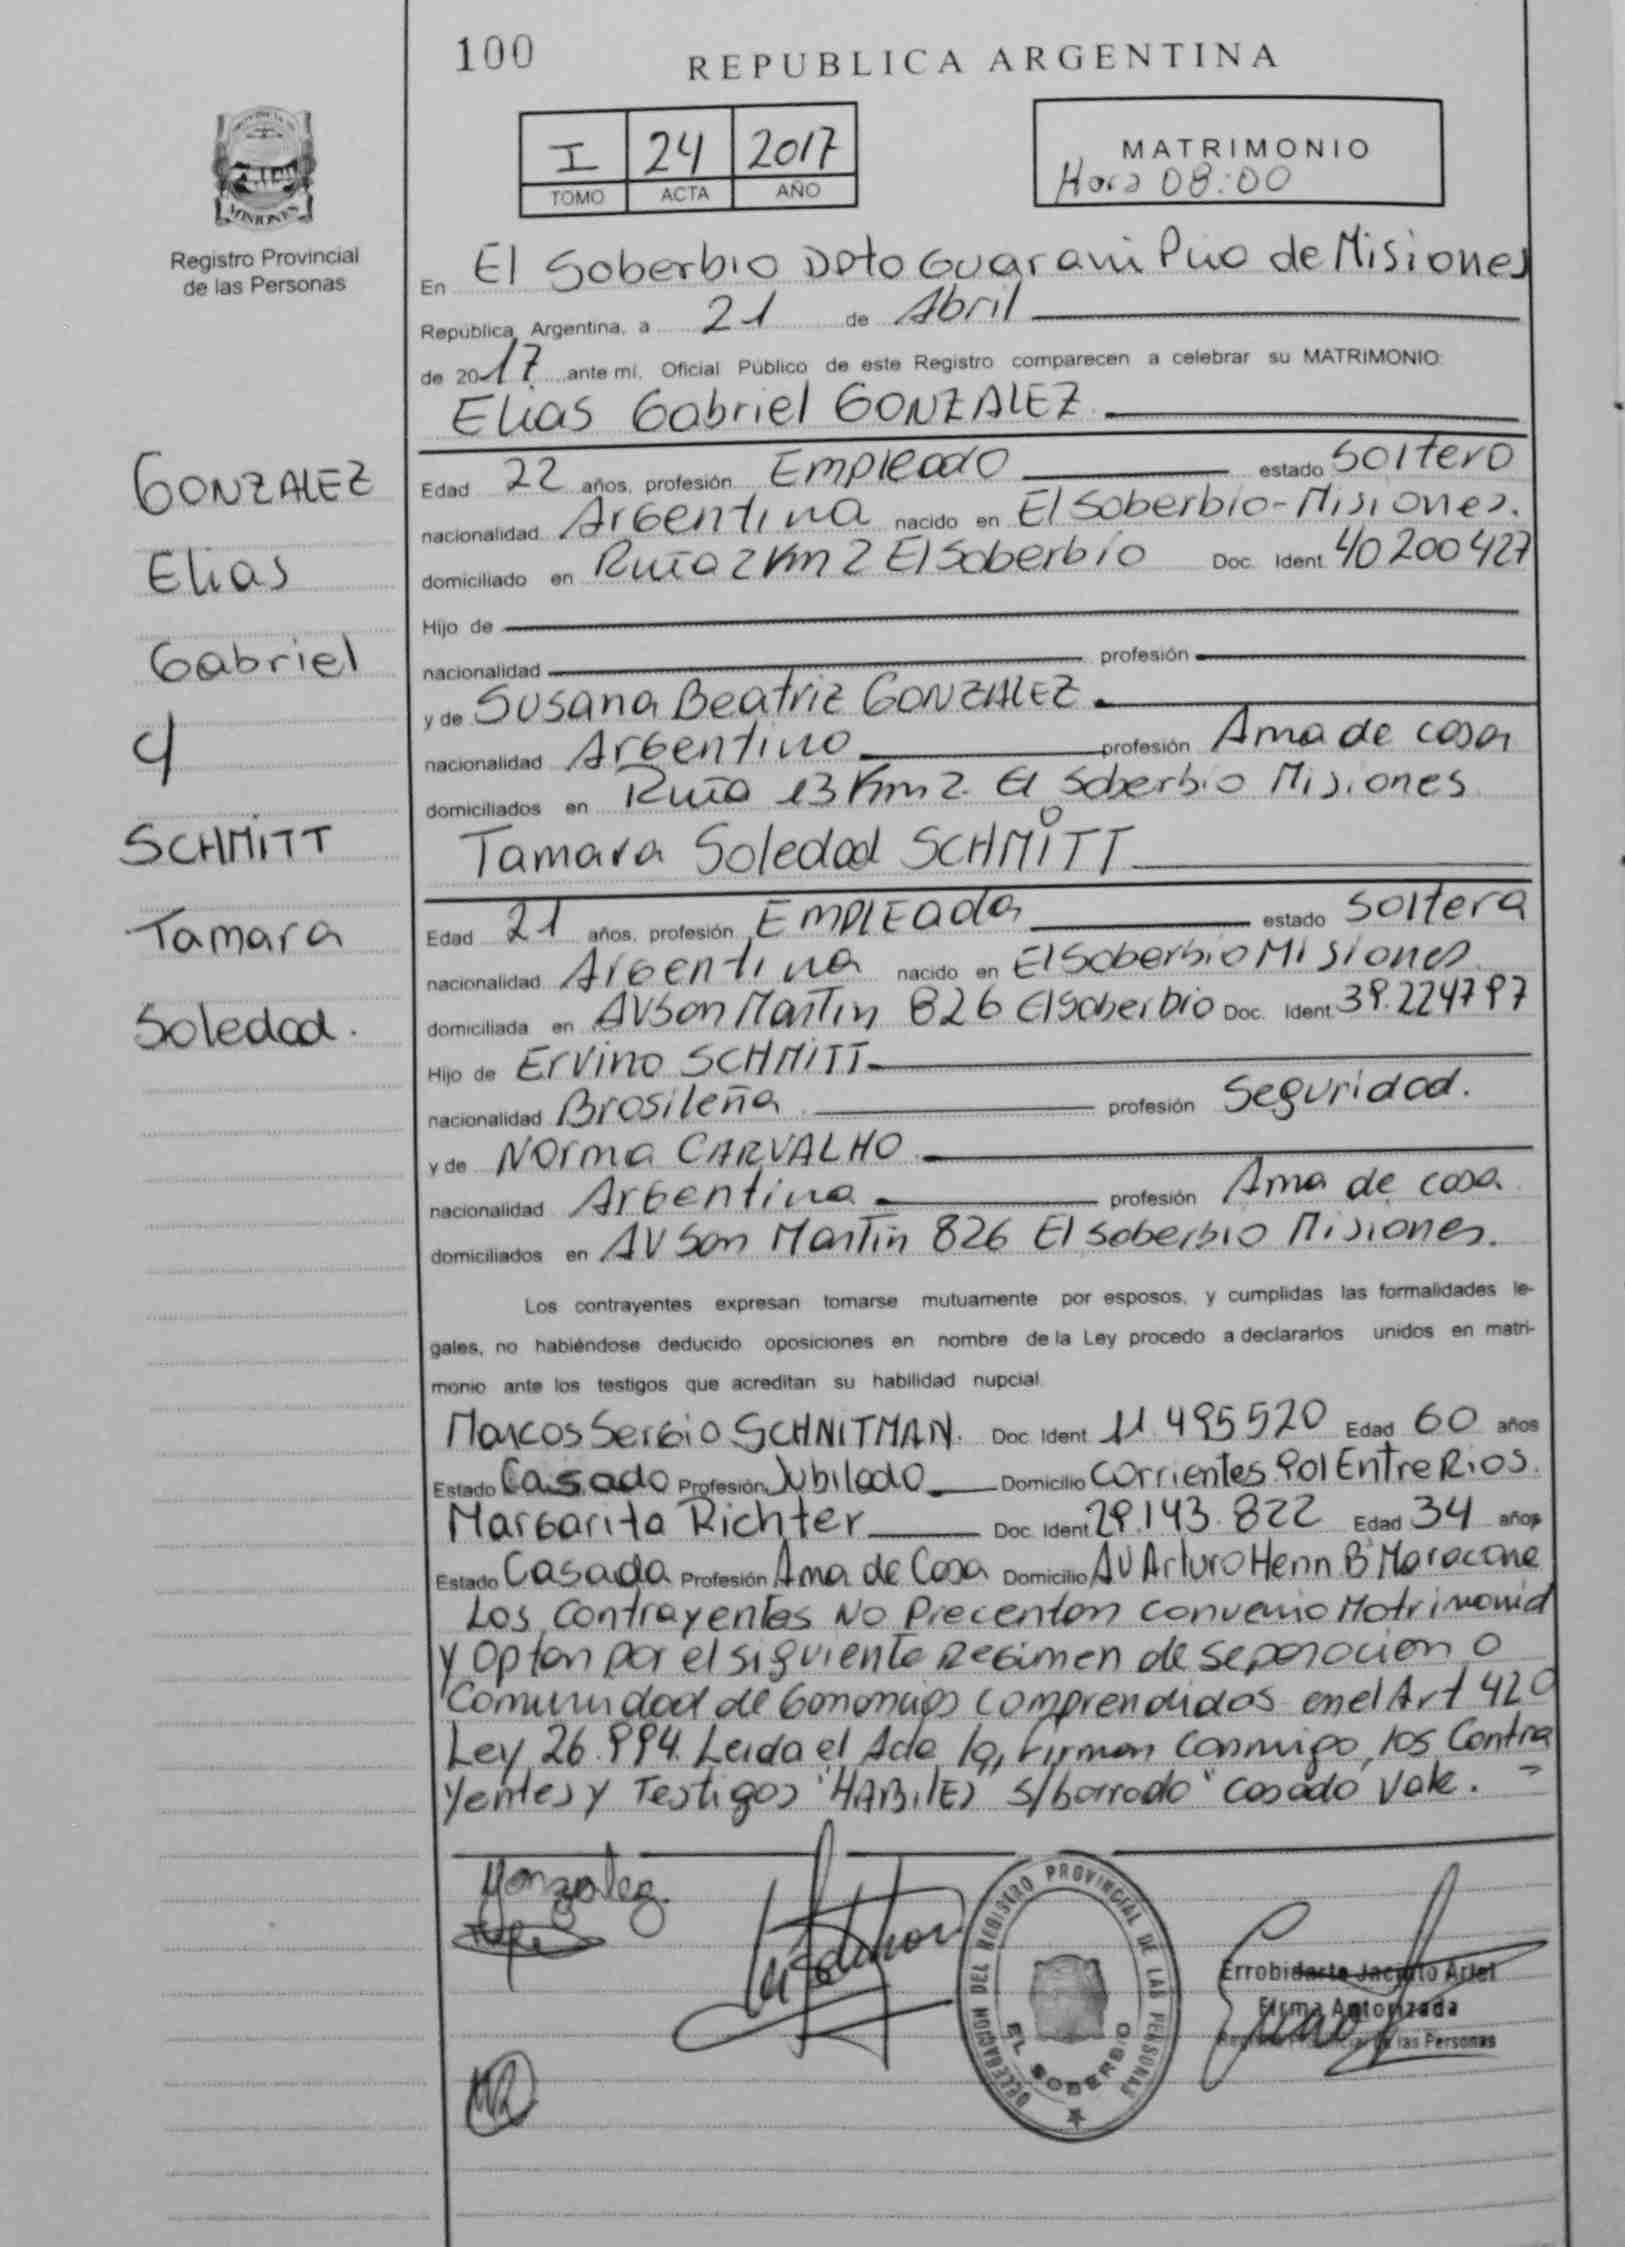 100
REPUBLICA ARGENTINA
I 24 2017
TOMO ACTA AÑO
MATRIMONIO
Hora 08:00
MISIONES
Registro Provincial
de las Personas
En El Soberbio Dpto Guarani Pcio de Misiones
República Argentina, a 21 de Abril
de 2017 ante mí, Oficial Público de este Registro comparecen a celebrar su MATRIMONIO:
Elias Gabriel GONZALEZ
GONZALEZ
Elias
Gabriel
y
SCHMITT
Tamara
Soledad.
Edad 22 años, profesión Empleado estado Soltero
nacionalidad Argentina nacido en El Soberbio-Misiones.
domiciliado en Ruta 2 Km 2 El Soberbio Doc. Ident. 40200427
Hijo de
nacionalidad profesión
y de Susana Beatriz GONZALEZ
nacionalidad Argentino profesión Ama de casa
domiciliados en Ruta 13 Km 2. El Soberbio Misiones
Tamara Soledad SCHMITT
Edad 21 años, profesión Empleada estado Soltera
nacionalidad Argentina nacido en El Soberbio Misiones
domiciliada en AV San Martin 826 El Soberbio Doc. Ident. 39.224797
Hijo de Ervino SCHMITT
nacionalidad Brasileña profesión Seguridad.
y de Norma CARVALHO
nacionalidad Argentina profesión Ama de casa
domiciliados en AV San Martin 826 El Soberbio Misiones.
Los contrayentes expresan tomarse mutuamente por esposos, y cumplidas las formalidades le-
gales, no habiéndose deducido oposiciones en nombre de la Ley procedo a declararlos unidos en matri-
monio ante los testigos que acreditan su habilidad nupcial.
Marcos Sergio SCHNITMAN. Doc. Ident. 11.495520 Edad 60 años
Estado Casado Profesión Jubilado Domicilio Corrientes 901 Entre Rios.
Margarita Richter Doc. Ident. 29.143.822 Edad 34 años
Estado Casada Profesión Ama de Casa Domicilio AV Arturo Henn Bº Maracana
Los Contrayentes No Precentan convenio Matrimonial
y Optan por el siguiente Regimen de separacion o
Comunidad de Gananciaos comprendidos en el Art 420
Ley 26.994. Leida el Acta la, Firman Conmigo, los Contra
yentes y Testigos "HABILES" s/borrado "casado" Vale.
Gonzalez
DELEGACION DEL REGISTRO PROVINCIAL DE LAS PERSONAS
EL SOBERBIO
Errobidarte Jacinto Ariel
Firma Autorizada
Registro Provincial de las Personas
MR